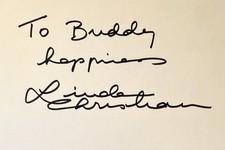 To Buddy
happiness
Linda
Christian